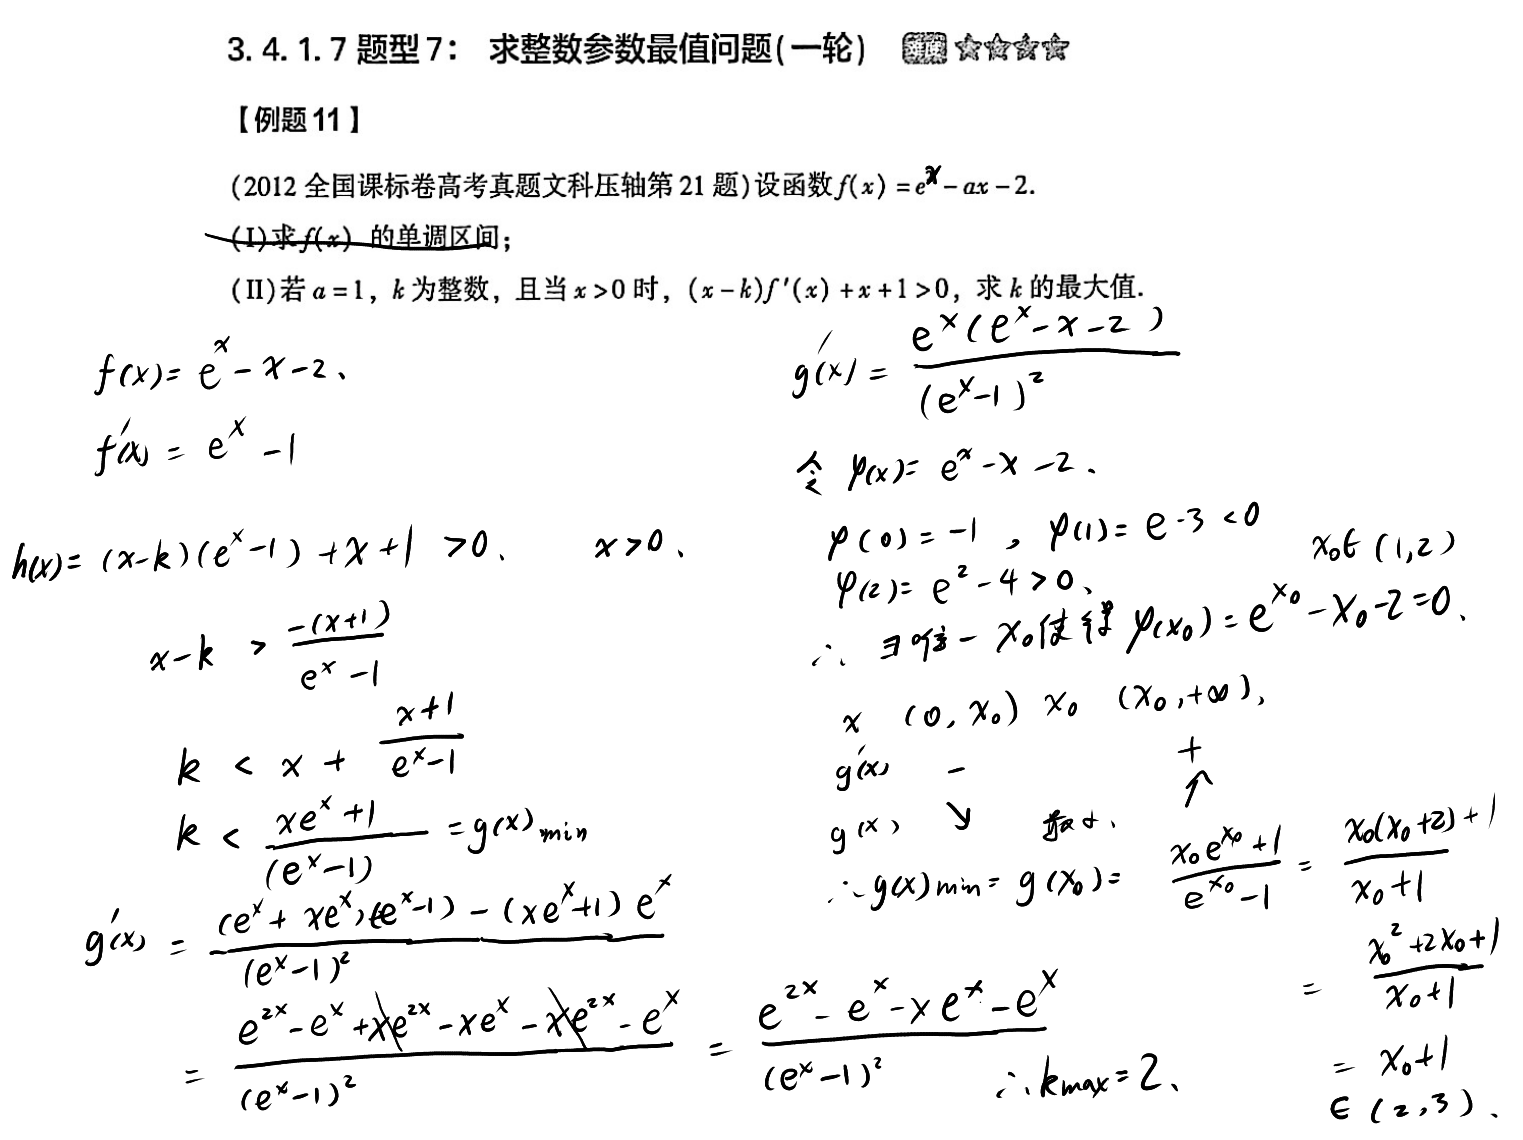 3.4.1.7 题型7： 求整数参数最值问题(一轮) ☆☆☆☆
【例题11】
(2012 全国课标卷高考真题文科压轴第21题)设函数f(x)=e^x-ax-2.
(I)求f(x) 的单调区间;
(II)若a=1, k为整数, 且当x>0时, (x-k)f'(x)+x+1>0, 求k的最大值.
f(x)= e^x - x - 2、
f'(x) = e^x - 1
h(x)= (x-k)(e^x-1)+x+1 >0、 x>0、
x-k > -(x+1)/(e^x-1)
k < x + (x+1)/(e^x-1)
k < (xe^x+1)/(e^x-1) = g(x)min
g'(x) = ((e^x+xe^x)(e^x-1)-(xe^x+1)e^x)/(e^x-1)^2
= (e^2x-e^x+xe^2x-xe^x-xe^2x-e^x)/(e^x-1)^2 = (e^2x-e^x-xe^x-e^x)/(e^x-1)^2
g'(x) = e^x(e^x-x-2)/(e^x-1)^2
令 φ(x)= e^x-x-2、
φ(0)=-1, φ(1)=e-3<0
φ(2)=e^2-4>0、 x0∈(1,2)
∴ ∃唯一 x0使得 φ(x0)=e^x0-x0-2=0、
x (0, x0) x0 (x0,+∞),
g'(x) - +
g(x) ↘ 最小、 ↑
∴g(x)min= g(x0)= (x0e^x0+1)/(e^x0-1) = (x0(x0+2)+1)/(x0+1)
= (x0^2+2x0+1)/(x0+1)
= x0+1
∈(2,3)、
∴kmax=2、